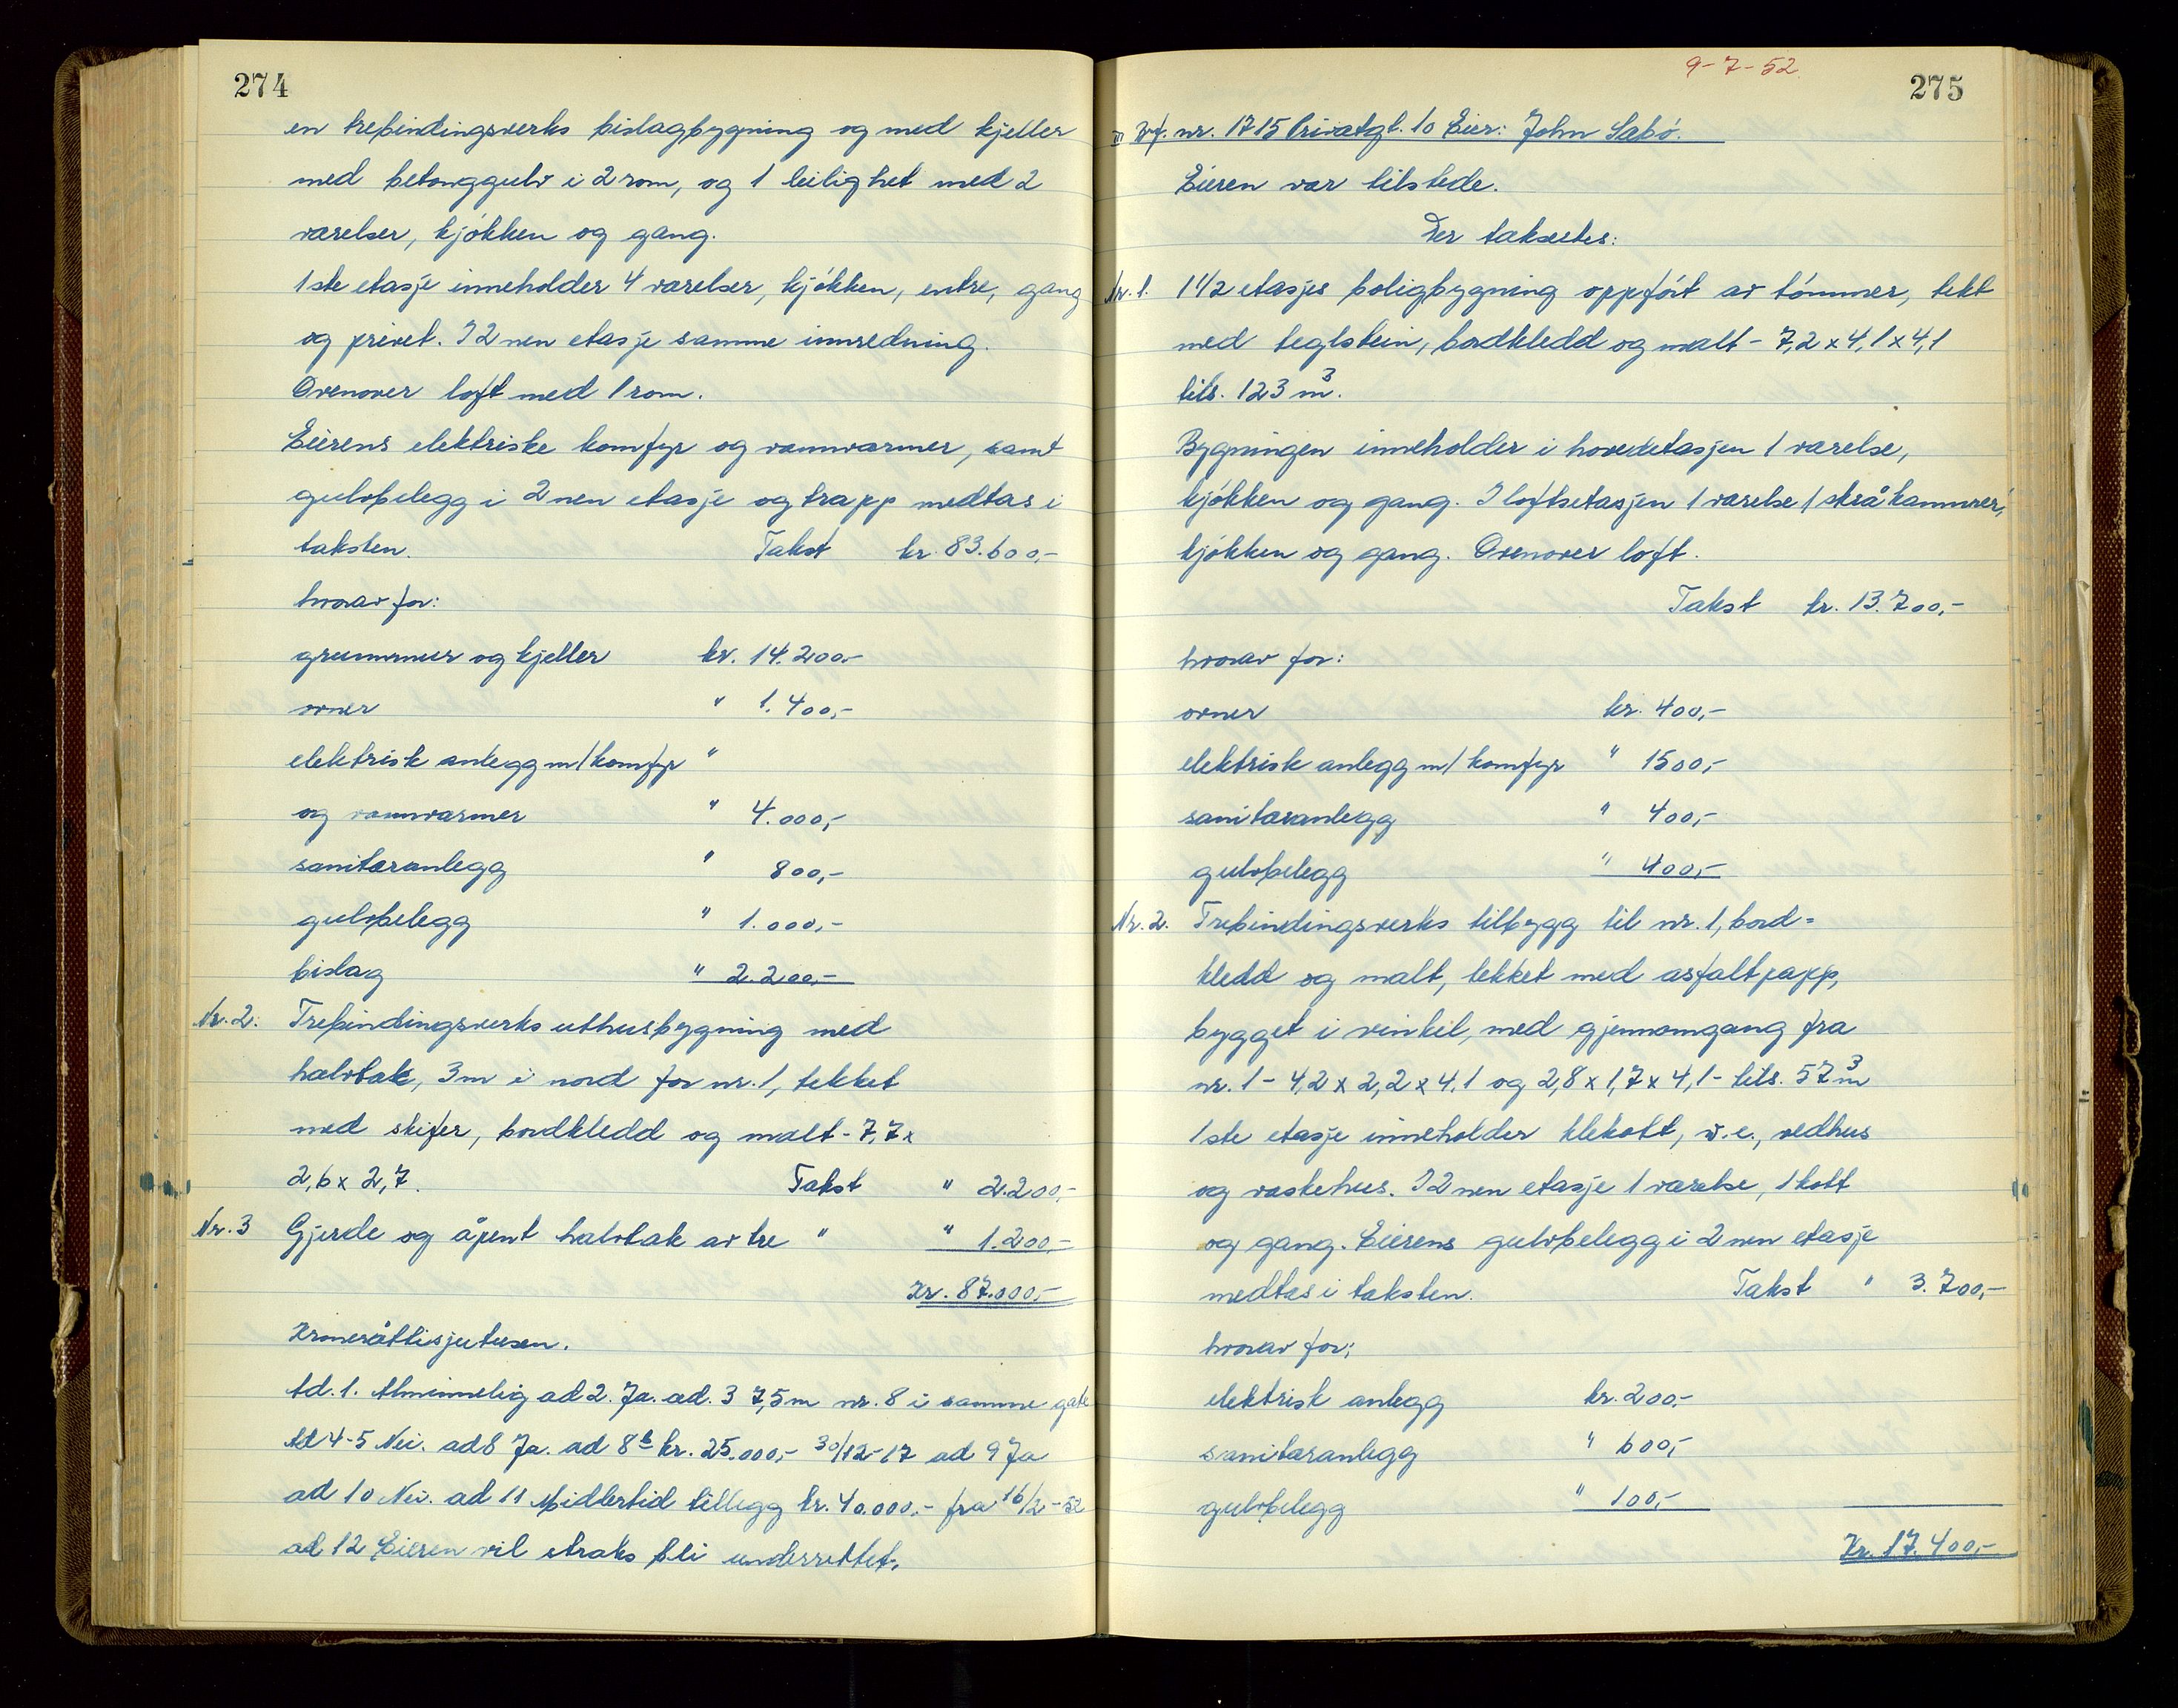 274
en trebindingsverks bislagbygning og med kjeller
med betonggulv i 2 rom, og 1 leilighet med 2
værelser, kjøkken og gang.
1ste etasje inneholder 4 værelser, kjøkken, entre, gang
og privet. I 2nen etasje samme innredning.
Ovenover loft med 1 rom.
Eierens elektriske komfyr og vannvarmer, samt
gulvbelegg i 2nen etasje og trapp medtas i
taksten. Takst kr. 83.600,-
hvorav for:
grunnmur og kjeller kr. 14.200.-
ovner " 1.400,-
elektrisk anlegg m/komfyr "
og vannvarmer " 4.000,-
sanitæranlegg " 800,-
gulvbelegg " 1.000,-
bislag " 2.200,-
Nr. 2. Trebindingsverks uthusbygning med
halvtak, 3m i nord for nr. 1, tekket
med skifer, bordkledd og malt - 7,7 x
2,6 x 2,7. Takst " 2.200,-
Nr. 3 Gjerde og åpent halvtak av tre " " 1.200,-
Kr. 87.000,-
Kroneråttisjutusen.
Ad. 1. Alminnelig ad 2. Ja. ad. 3 7,5m nr. 8 i samme gate
Ad 4-5 Nei. ad 8 Ja. ad 8b kr. 25.000,- 30/12-17 ad 9 Ja
ad 10 Nei. ad 11 Midlertid tillegg kr. 40.000.- fra 16/2-52
ad 12 Eieren vil straks bli underrettet.
9-7-52.
275
Brf. nr. 1715 Privatgt. 10 Eier: John Sabø.
Eieren var tilstede.
Der taksertes:
Nr. 1. 1 1/2 etasjes boligbygning oppført av tømmer, tekt
med teglstein, bordkledd og malt - 7,2 x 4,1 x 4,1
tils. 123 m3.
Bygningen inneholder i hovedetasjen 1 værelse,
kjøkken og gang. I loftsetasjen 1 værelse /skråkammer/,
kjøkken og gang. Ovenover loft.
Takst kr. 13.700,-
hvorav for:
ovner kr. 400,-
elektrisk anlegg m/komfyr " 1500,-
sanitæranlegg " 400,-
gulvbelegg " 400,-
Nr. 2. Trebindingsverks tilbygg til nr. 1, bord=
kledd og malt, tekket med asfaltpapp,
bygget i vinkel, med gjennomgang fra
nr. 1 - 4,2 x 2,2 x 4,1 og 2,8 x 1,7 x 4,1 - tils. 57 m3
1ste etasje inneholder klekott, w.c., vedhus
og vaskehus. I 2nen etasje 1 værelse, 1 kott
og gang. Eierens gulvbelegg i 2nen etasje
medtas i taksten. Takst " 3.700,-
hvorav for;
elektrisk anlegg kr. 200.-
sanitæranlegg " 600,-
gulvbelegg " 100,-
Kr. 17.400,-